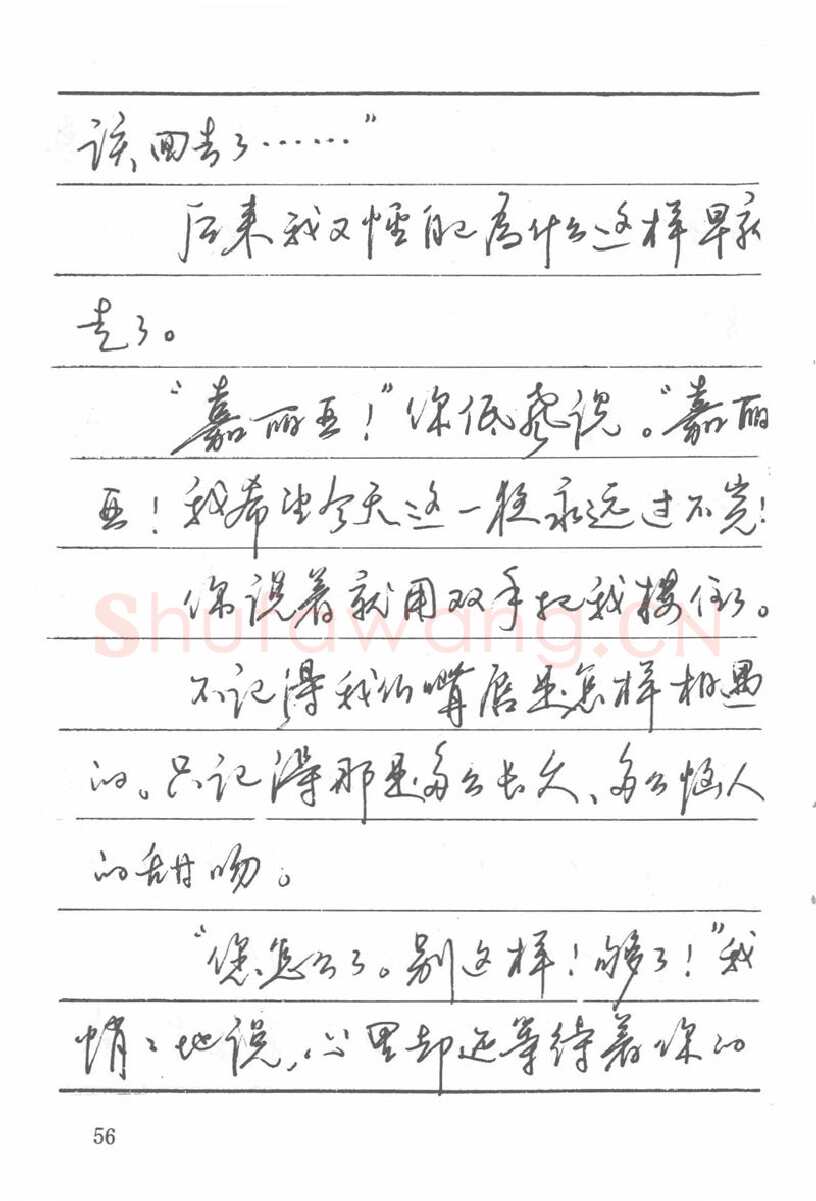 该回去了……”
后来我又怪自己为什么这样早就
走了。
“嘉丽亚！”你低声说。“嘉丽
亚！我希望今天这一程永远过不完！
你说着就用双手把我搂住了。
不记得我们嘴唇是怎样相遇
的。只记得那是多么长久、多么恼人
的甜吻。
“您怎么了。别这样！够了！”我
悄悄地说，心里却还等待着你的
56
Shufawang.CN